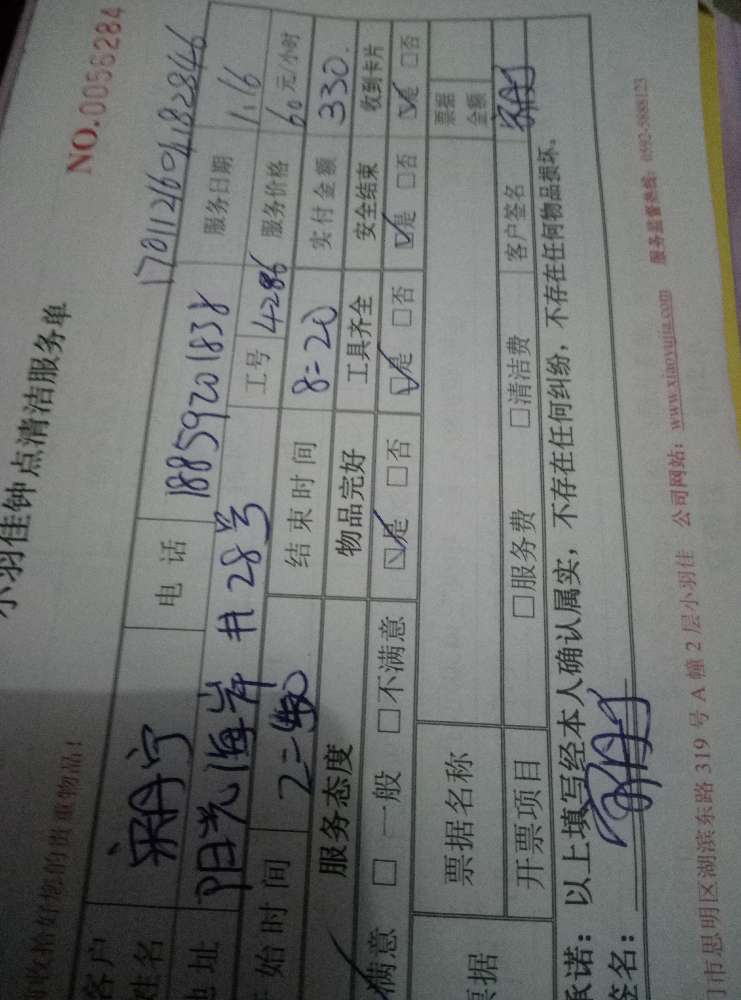 小羽佳钟点清洁服务单
NO.0056284
收拾好您的贵重物品!
1701121604182846
客户姓名 电话 18859201838 服务日期 1.16
地址 阳光海岸 #28号 工号 4286 服务价格 60元/小时
始时间 结束时间 8=20 实付金额 330.
服务态度 物品完好 工具齐全 安全结束 收到卡片
满意 □一般 □不满意 ☑是 □否 ☑是 □否 ☑是 □否 ☑是 □否
票据 票据名称 票据金额
开票项目 □服务费 □清洁费 客户签名
承诺:以上填写经本人确认属实,不存在任何纠纷,不存在任何物品损坏。
签名:
市思明区湖滨东路 319 号 A 幢 2 层小羽佳 公司网站:www.xiaoyujia.com 服务监督热线:0592-5888123